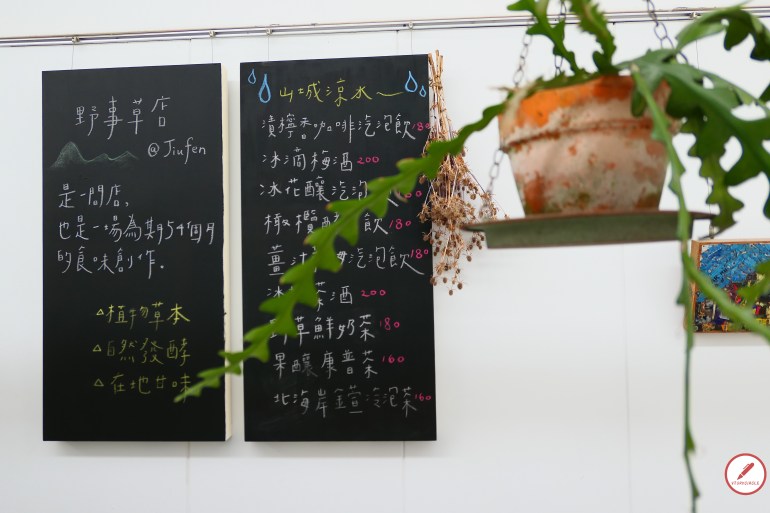 野事草店
@Jiufen
是一間店，
也是一場為期54個月
的食味創作．
△植物草本
△自然發酵
△在地甘味
山城涼水
漬檸香咖啡汽泡飲180
冰滴梅酒200
冰花釀汽泡
橄欖 飲180
薑汁 汽泡飲180
冰 茶酒 200
草鮮奶茶 180
果釀康普茶 160
北海岸金萱冷泡茶160